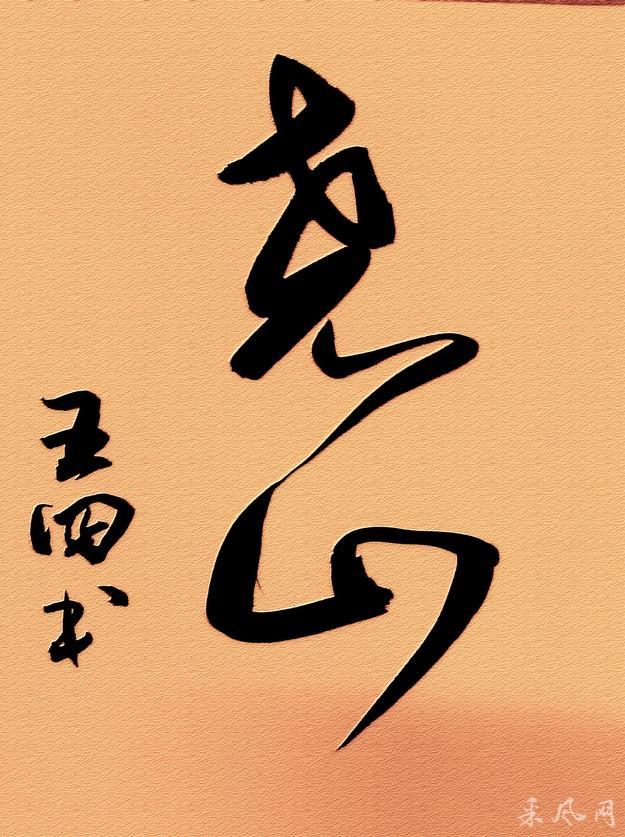 尧山
王四书
采风网